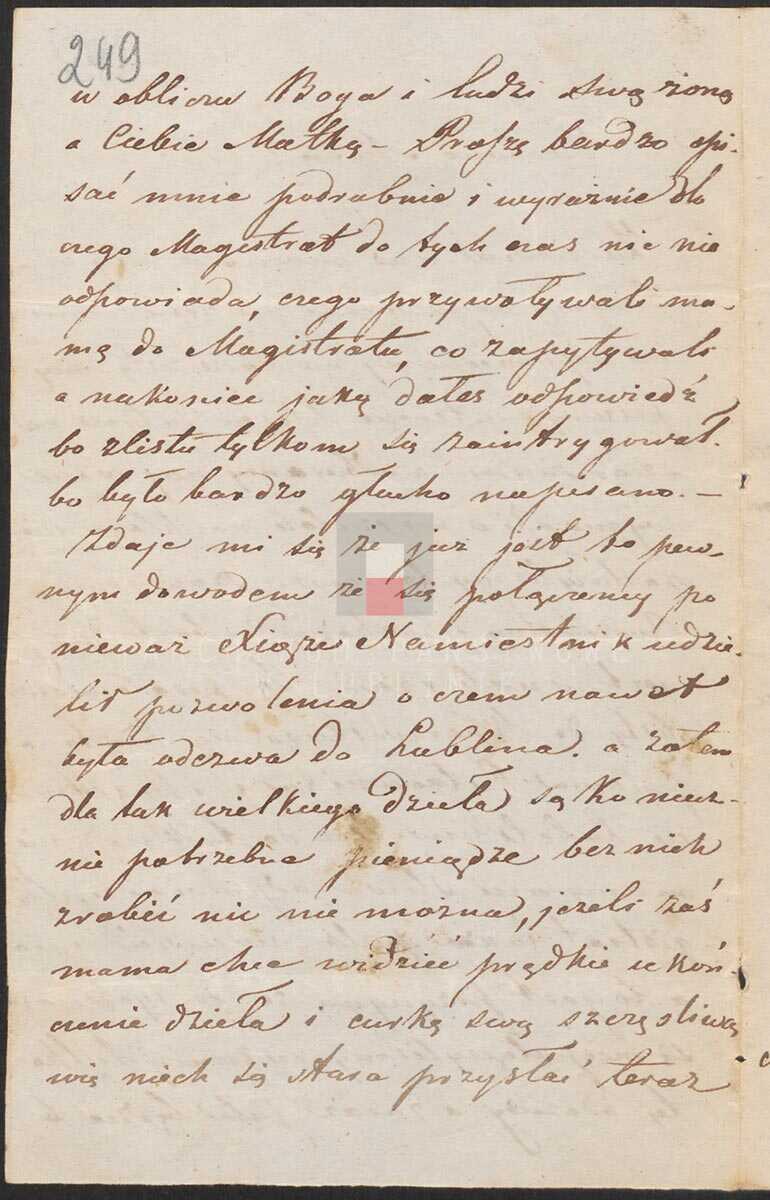 249
w obliczu Boga i ludzi swą żoną
a Ciebie Matką – Proszę bardzo opi-
sać mnie podrobnie i wyraznie dla
czego Magistrat do tych czas nic nie
odpowiada, czego przywoływali ma-
mę do Magistratu, co zapytywali
a nakoniec jaką dałeś odpowiedź
bo z listu tylkom się zaintrygował.
bo było bardzo głucho napisano. –
Zdaje mi się że już jest to pew-
nym dowodem że się połączemy po
nieważ Xiąże Namiestnik udzie-
lił pozwolenia o czem nawet
była odezwa do Lublina. a zatem
dla tak wielkiego dzieła są koniecz-
nie potrzebne pieniądze bez nich
zrobić nic nie można, jeżeli zaś
mama chce widzieć prędkie ukoń-
czenie dzieła i curkę swą szczęsliwą
więc niech się stara przysłać teraz